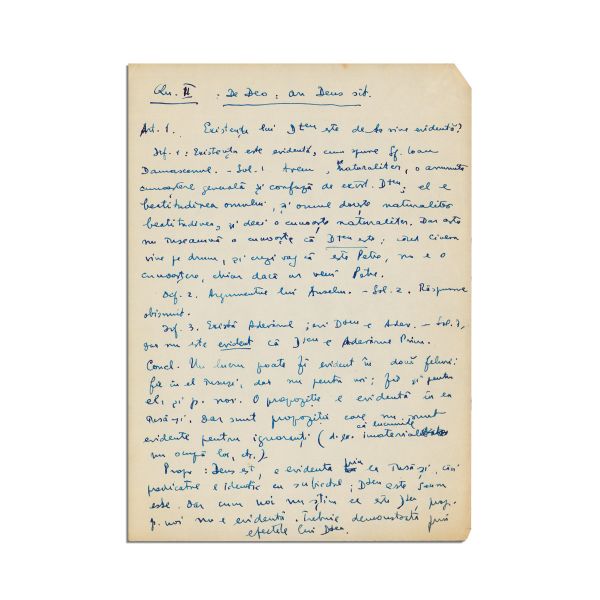 Qu. II : De Deo: an Deus sit.
Art. 1. Existența lui Dzeu este de la sine evidentă?
Dif. 1: Existența este evidentă, cum spune Sf. Ioan
Damascenul. - Sol. 1 Avem, naturaliter, o anumită
cunoaștere generală și confuză de exist. Dzeu; el e
beatitudinea omului, și omul dorește naturaliter
beatitudinea, și deci o cunoaște naturaliter. Dar asta
nu înseamnă a cunoaște că Dzeu este; când cineva
vine pe drum, și crezi vag că este Petre, nu e o
cunoaștere, chiar dacă ar veni Petre.
Dif. 2. Argumentul lui Anselm. - Sol. 2. Răspuns
obișnuit.
Dif. 3. Există Adevărul; ori Dzeu e Adev. - Sol. 3,
dar nu este evident că Dzeu e Adevărul Prim.
Concl. Un lucru poate fi evident în două feluri:
fie în el însuși, dar nu pentru noi; fie și pentru
el, și p. noi. O propoziție e evidentă în ea
însăși. Dar sunt propoziții care nu sunt
evidente pentru ignoranți (d. ex. că lucrurile imateriale
nu ocupă loc, etc.)
Prop: Deus est, e evidentă prin ea însăși, căci
predicatul e identic cu subiectul; Dzeu este suum
esse. Dar cum noi nu știm ce este Dzeu, prop.
p. noi nu e evidentă. Trebuie demonstrată prin
efectele lui Dzeu.